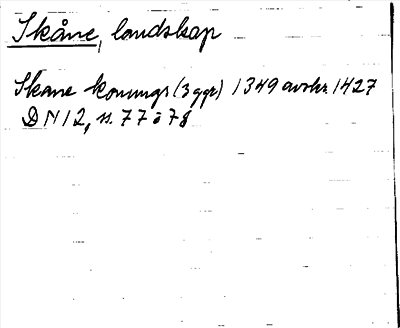 Skåne, landskap
Skane konungr (3 ggr) 1349 avskr. 1427
DN 12, s. 77 o 78